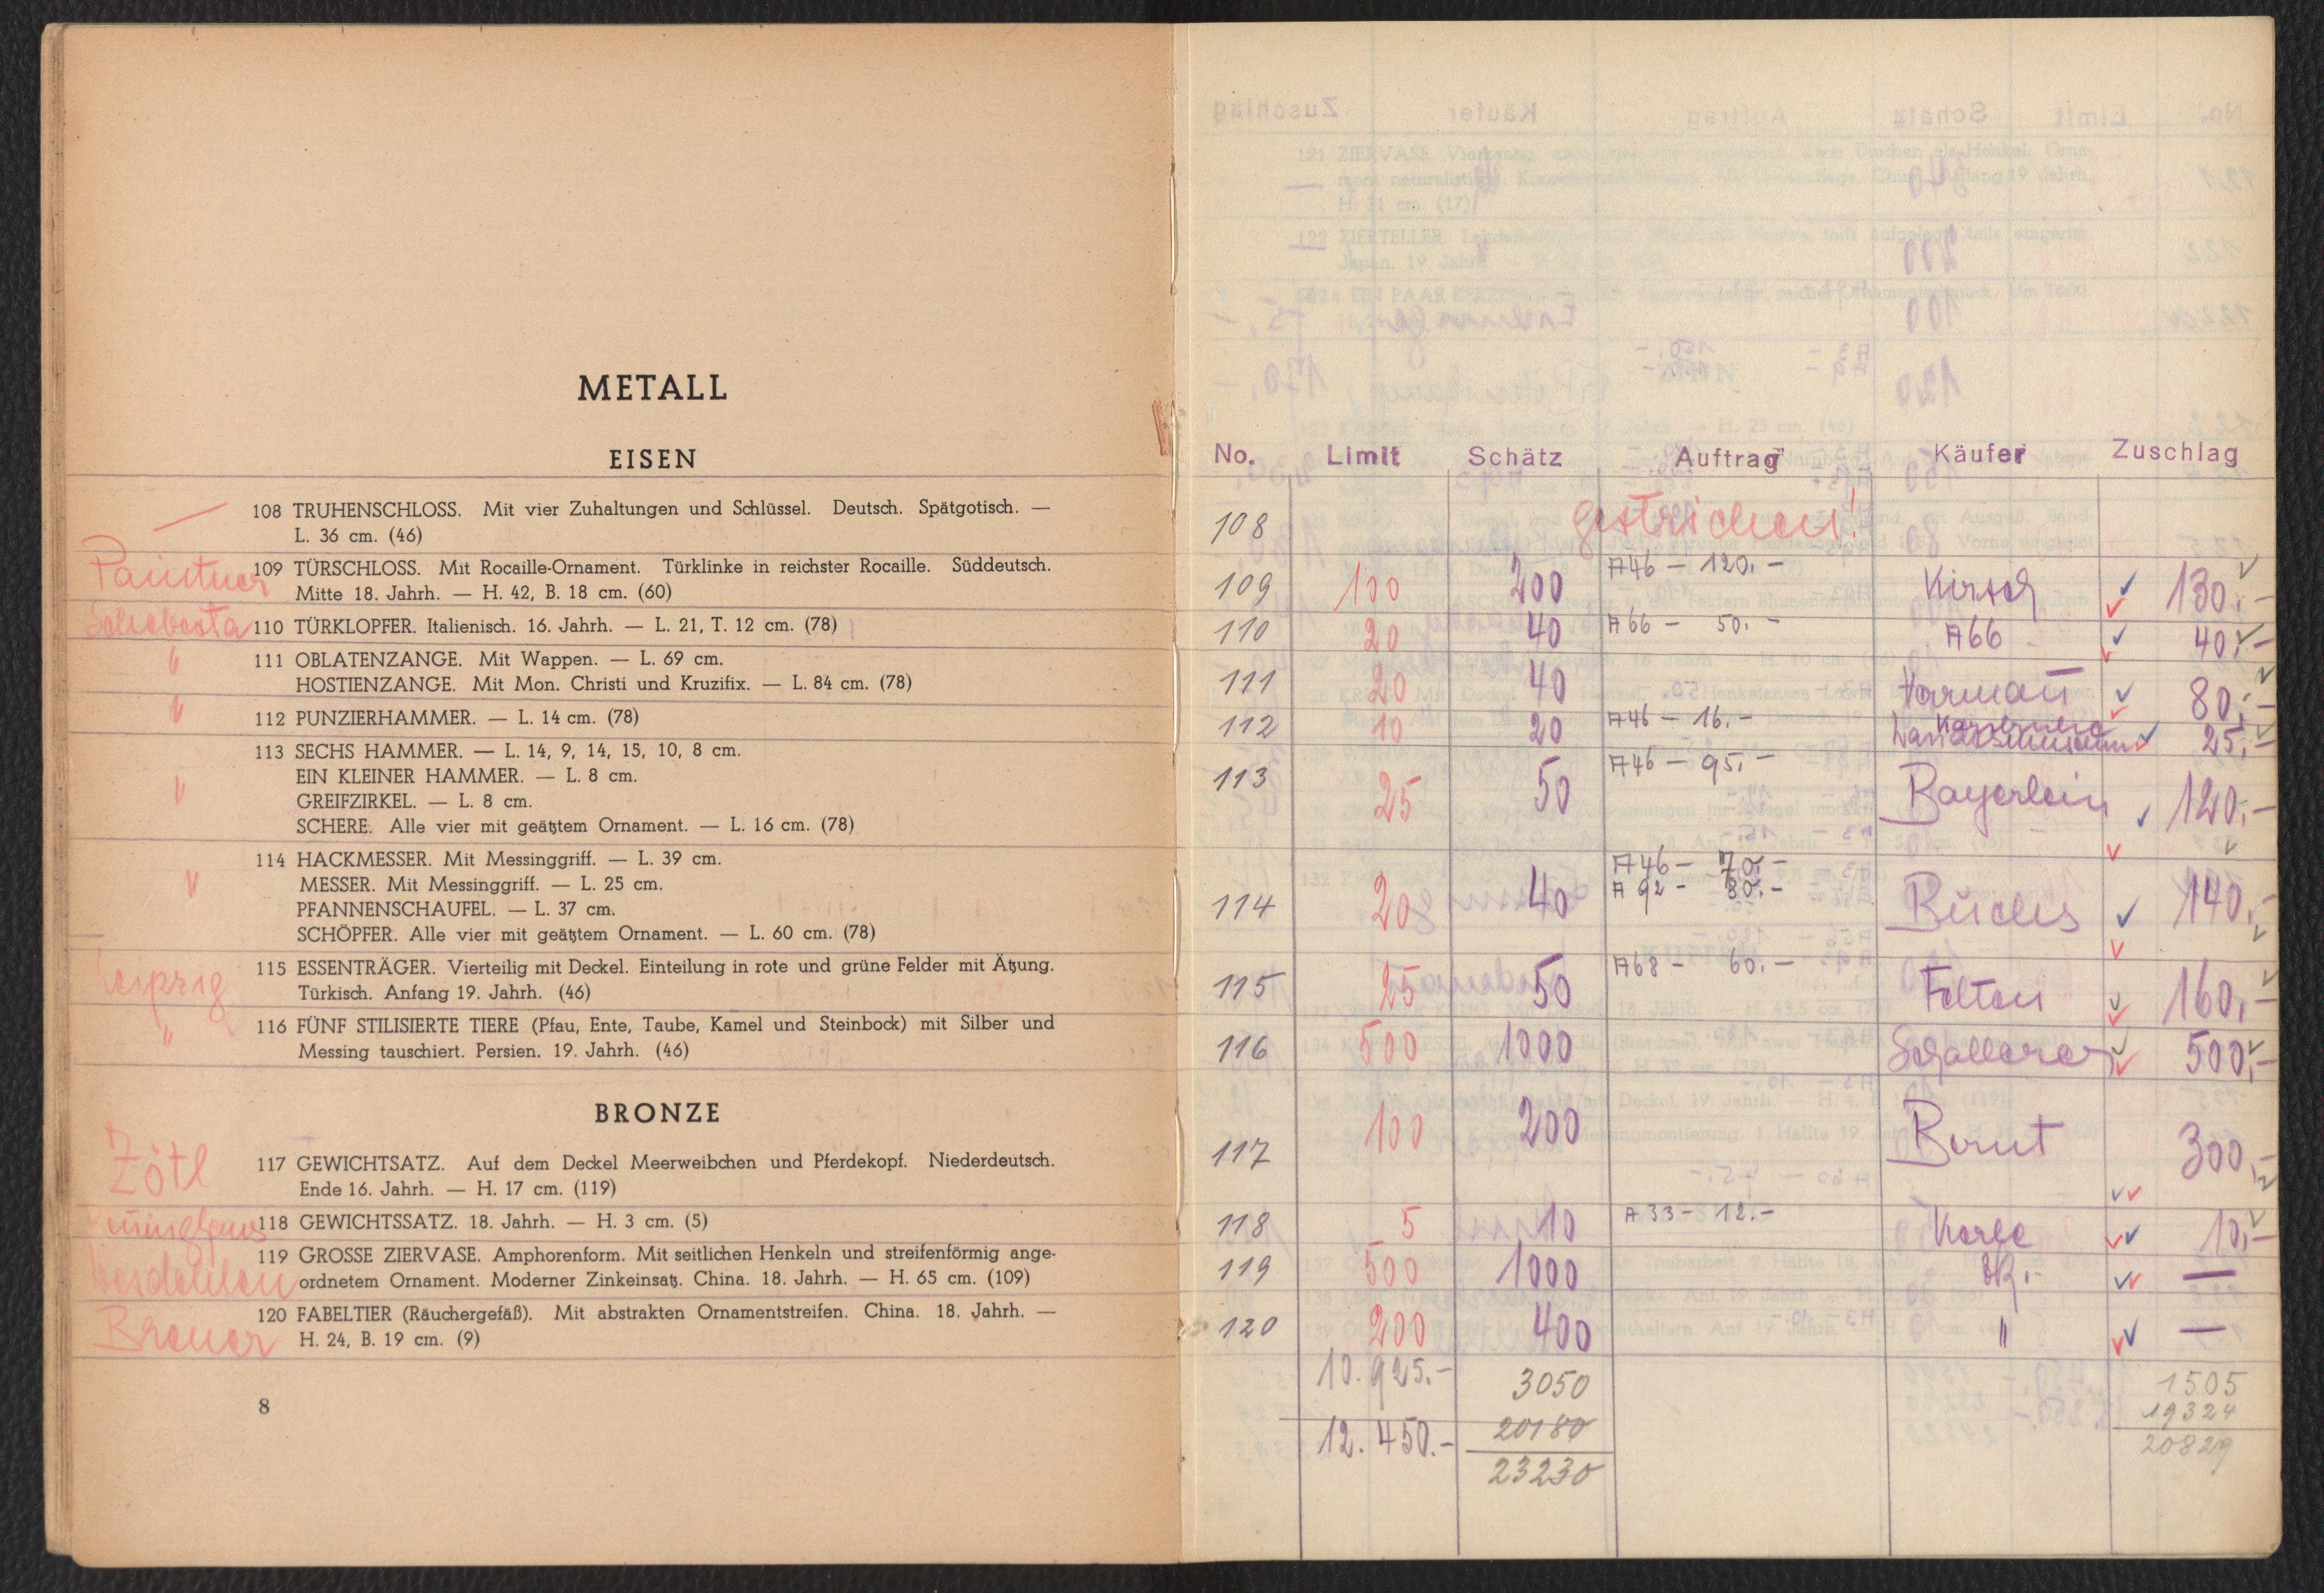 METALL
EISEN
108 TRUHENSCHLOSS. Mit vier Zuhaltungen und Schlüssel. Deutsch. Spätgotisch. —
L. 36 cm. (46)
109 TÜRSCHLOSS. Mit Rocaille-Ornament. Türklinke in reichster Rocaille. Süddeutsch.
Mitte 18. Jahrh. — H. 42, B. 18 cm. (60)
110 TÜRKLOPFER. Italienisch. 16. Jahrh. — L. 21, T. 12 cm. (78)
111 OBLATENZANGE. Mit Wappen. — L. 69 cm.
HOSTIENZANGE. Mit Mon. Christi und Kruzifix. — L. 84 cm. (78)
112 PUNZIERHAMMER. — L. 14 cm. (78)
113 SECHS HAMMER. — L. 14, 9, 14, 15, 10, 8 cm.
EIN KLEINER HAMMER. — L. 8 cm.
GREIFZIRKEL. — L. 8 cm.
SCHERE. Alle vier mit geätztem Ornament. — L. 16 cm. (78)
114 HACKMESSER. Mit Messinggriff. — L. 39 cm.
MESSER. Mit Messinggriff. — L. 25 cm.
PFANNENSCHAUFEL. — L. 37 cm.
SCHÖPFER. Alle vier mit geätztem Ornament. — L. 60 cm. (78)
Leipzig 115 ESSENTRÄGER. Vierteilig mit Deckel. Einteilung in rote und grüne Felder mit Ätzung.
Türkisch. Anfang 19. Jahrh. (46)
" 116 FÜNF STILISIERTE TIERE (Pfau, Ente, Taube, Kamel und Steinbock) mit Silber und
Messing tauschiert. Persien. 19. Jahrh. (46)
BRONZE
Zötl 117 GEWICHTSATZ. Auf dem Deckel Meerweibchen und Pferdekopf. Niederdeutsch.
Ende 16. Jahrh. — H. 17 cm. (119)
118 GEWICHTSSATZ. 18. Jahrh. — H. 3 cm. (5)
119 GROSSE ZIERVASE. Amphorenform. Mit seitlichen Henkeln und streifenförmig ange-
ordnetem Ornament. Moderner Zinkeinsatz. China. 18. Jahrh. — H. 65 cm. (109)
120 FABELTIER (Räuchergefäß). Mit abstrakten Ornamentstreifen. China. 18. Jahrh. —
Brauer H. 24, B. 19 cm. (9)
8
No. Limit Schätz Auftrag Käufer Zuschlag
108 gestrichen!
109 100 200 A46 – 120.– Kirsch 130,–
110 20 40 A66 – 50.– A66 40,–
111 20 40 80,–
112 10 20 A46 – 16.– 25,–
113 25 50 A46 – 95,– Bayerlein 120,–
114 20 40 A46 – 70.– 140,–
A92 – 80.–
115 25 50 A68 – 60.– Felten 160,–
116 500 1000 500,–
117 100 200 300,–
118 5 10 A33 – 12.– 10,–
119 500 1000 —
120 200 400 " —
10.925.– 3050 1505
20180 19324
12.450.– 23230 20829